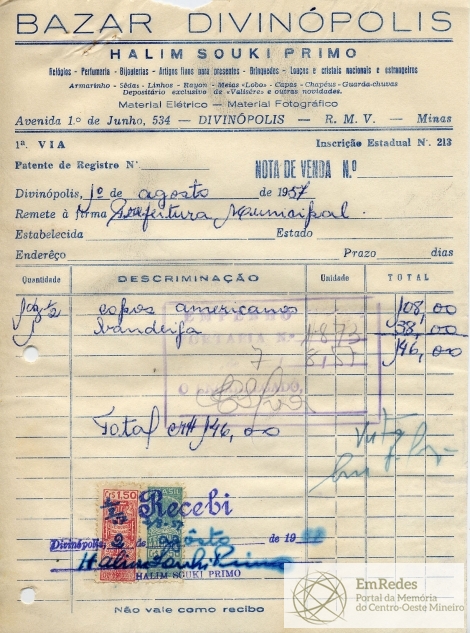 BAZAR DIVINÓPOLIS
HALIM SOUKI PRIMO
Relógios - Perfumaria - Bijouterias - Artigos finos para presentes - Brinquedos - Louças e cristais nacionais e estrangeiros
Armarinho - Sêdas - Linhos - Rayon - Meias «Lobo» - Capas - Chapéus - Guarda-chuvas
Depositário exclusivo de «Valisère» e outras novidades.
Material Elétrico - Material Fotográfico
Avenida 1.º de Junho, 534 - DIVINÓPOLIS - R. M. V. - Minas
1ª. VIA Inscrição Estadual Nº. 213
Patente de Registro Nº. NOTA DE VENDA N.º
Divinópolis, 1º de agosto de 1957
Remete à firma Prefeitura Municipal.
Estabelecida Estado
Enderêço Prazo dias
Quantidade DESCRIMINAÇÃO Unidade TOTAL
copos americanos 108,00
bandeija 38,00
EMPENHO
PORTARIA N.º 1873
146,00
7 8,57
Total cr$ 146,00
Visto
Cr$ 1,50 BRASIL
Recebi
Divinópolis, 2 de agôsto de 19
Halim Souki Primo
HALIM SOUKI PRIMO
Não vale como recibo
EmRedes
Portal da Memória
do Centro-Oeste Mineiro